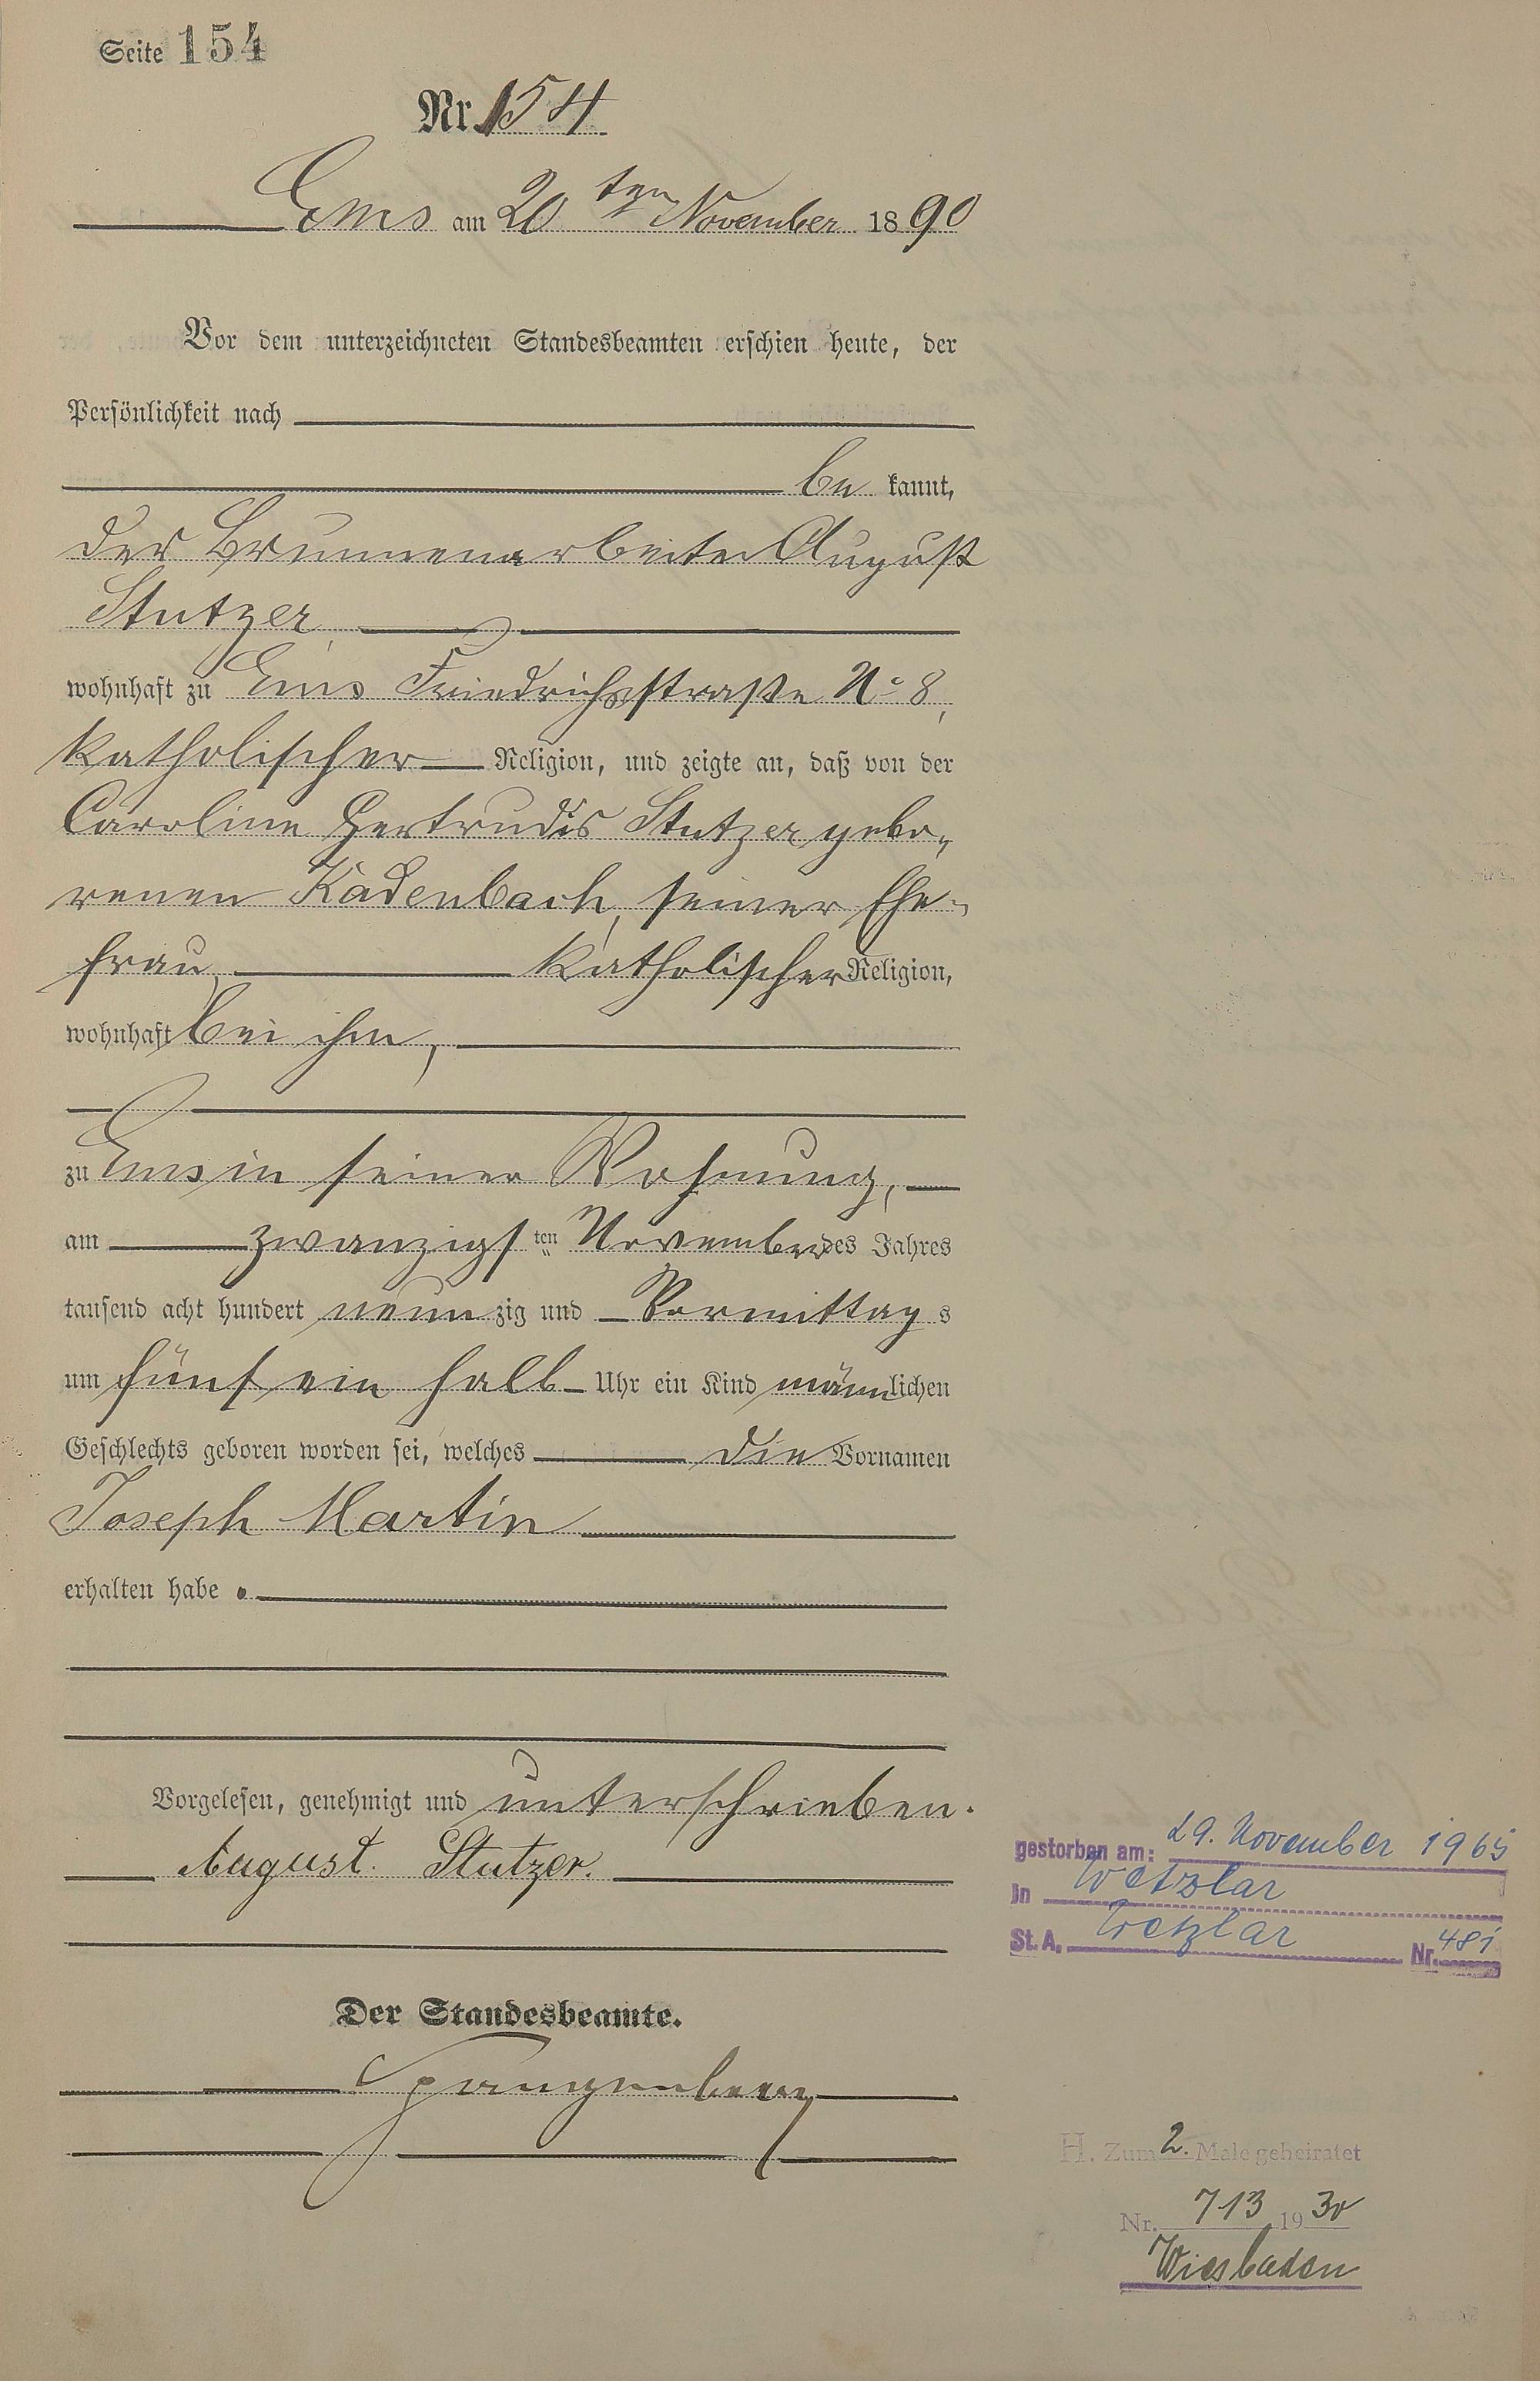 Seite 154
Nr. 154
Ems am 20ten November 1890
Vor dem unterzeichneten Standesbeamten erschien heute, der
Persönlichkeit nach
be kannt,
der Brunnenarbeiter August
Stutzer
wohnhaft zu Ems Friedrichsstraße No 8,
katholischer Religion, und zeigte an, daß von der
Caroline Gertrudis Stutzer gebo„
renen Kadenbach, seiner Ehe„
frau, katholischer Religion,
wohnhaft bei ihm,
zu Ems in seiner Wohnung,
am zwanzigs ten November des Jahres
tausend acht hundert neun zig und Vormittag s
um fünf ein halb Uhr ein Kind männlichen
Geschlechts geboren worden sei, welches die Vornamen
Joseph Martin
erhalten habe.
Vorgelesen, genehmigt und unterschrieben.
August. Stutzer.
Der Standesbeamte.
Spangenberg
gestorben am: 29. November 1965
in Wetzlar
St. A. Wetzlar Nr. 481
H. Zum 2. Male geheiratet
Nr. 713 1930
Wiesbaden